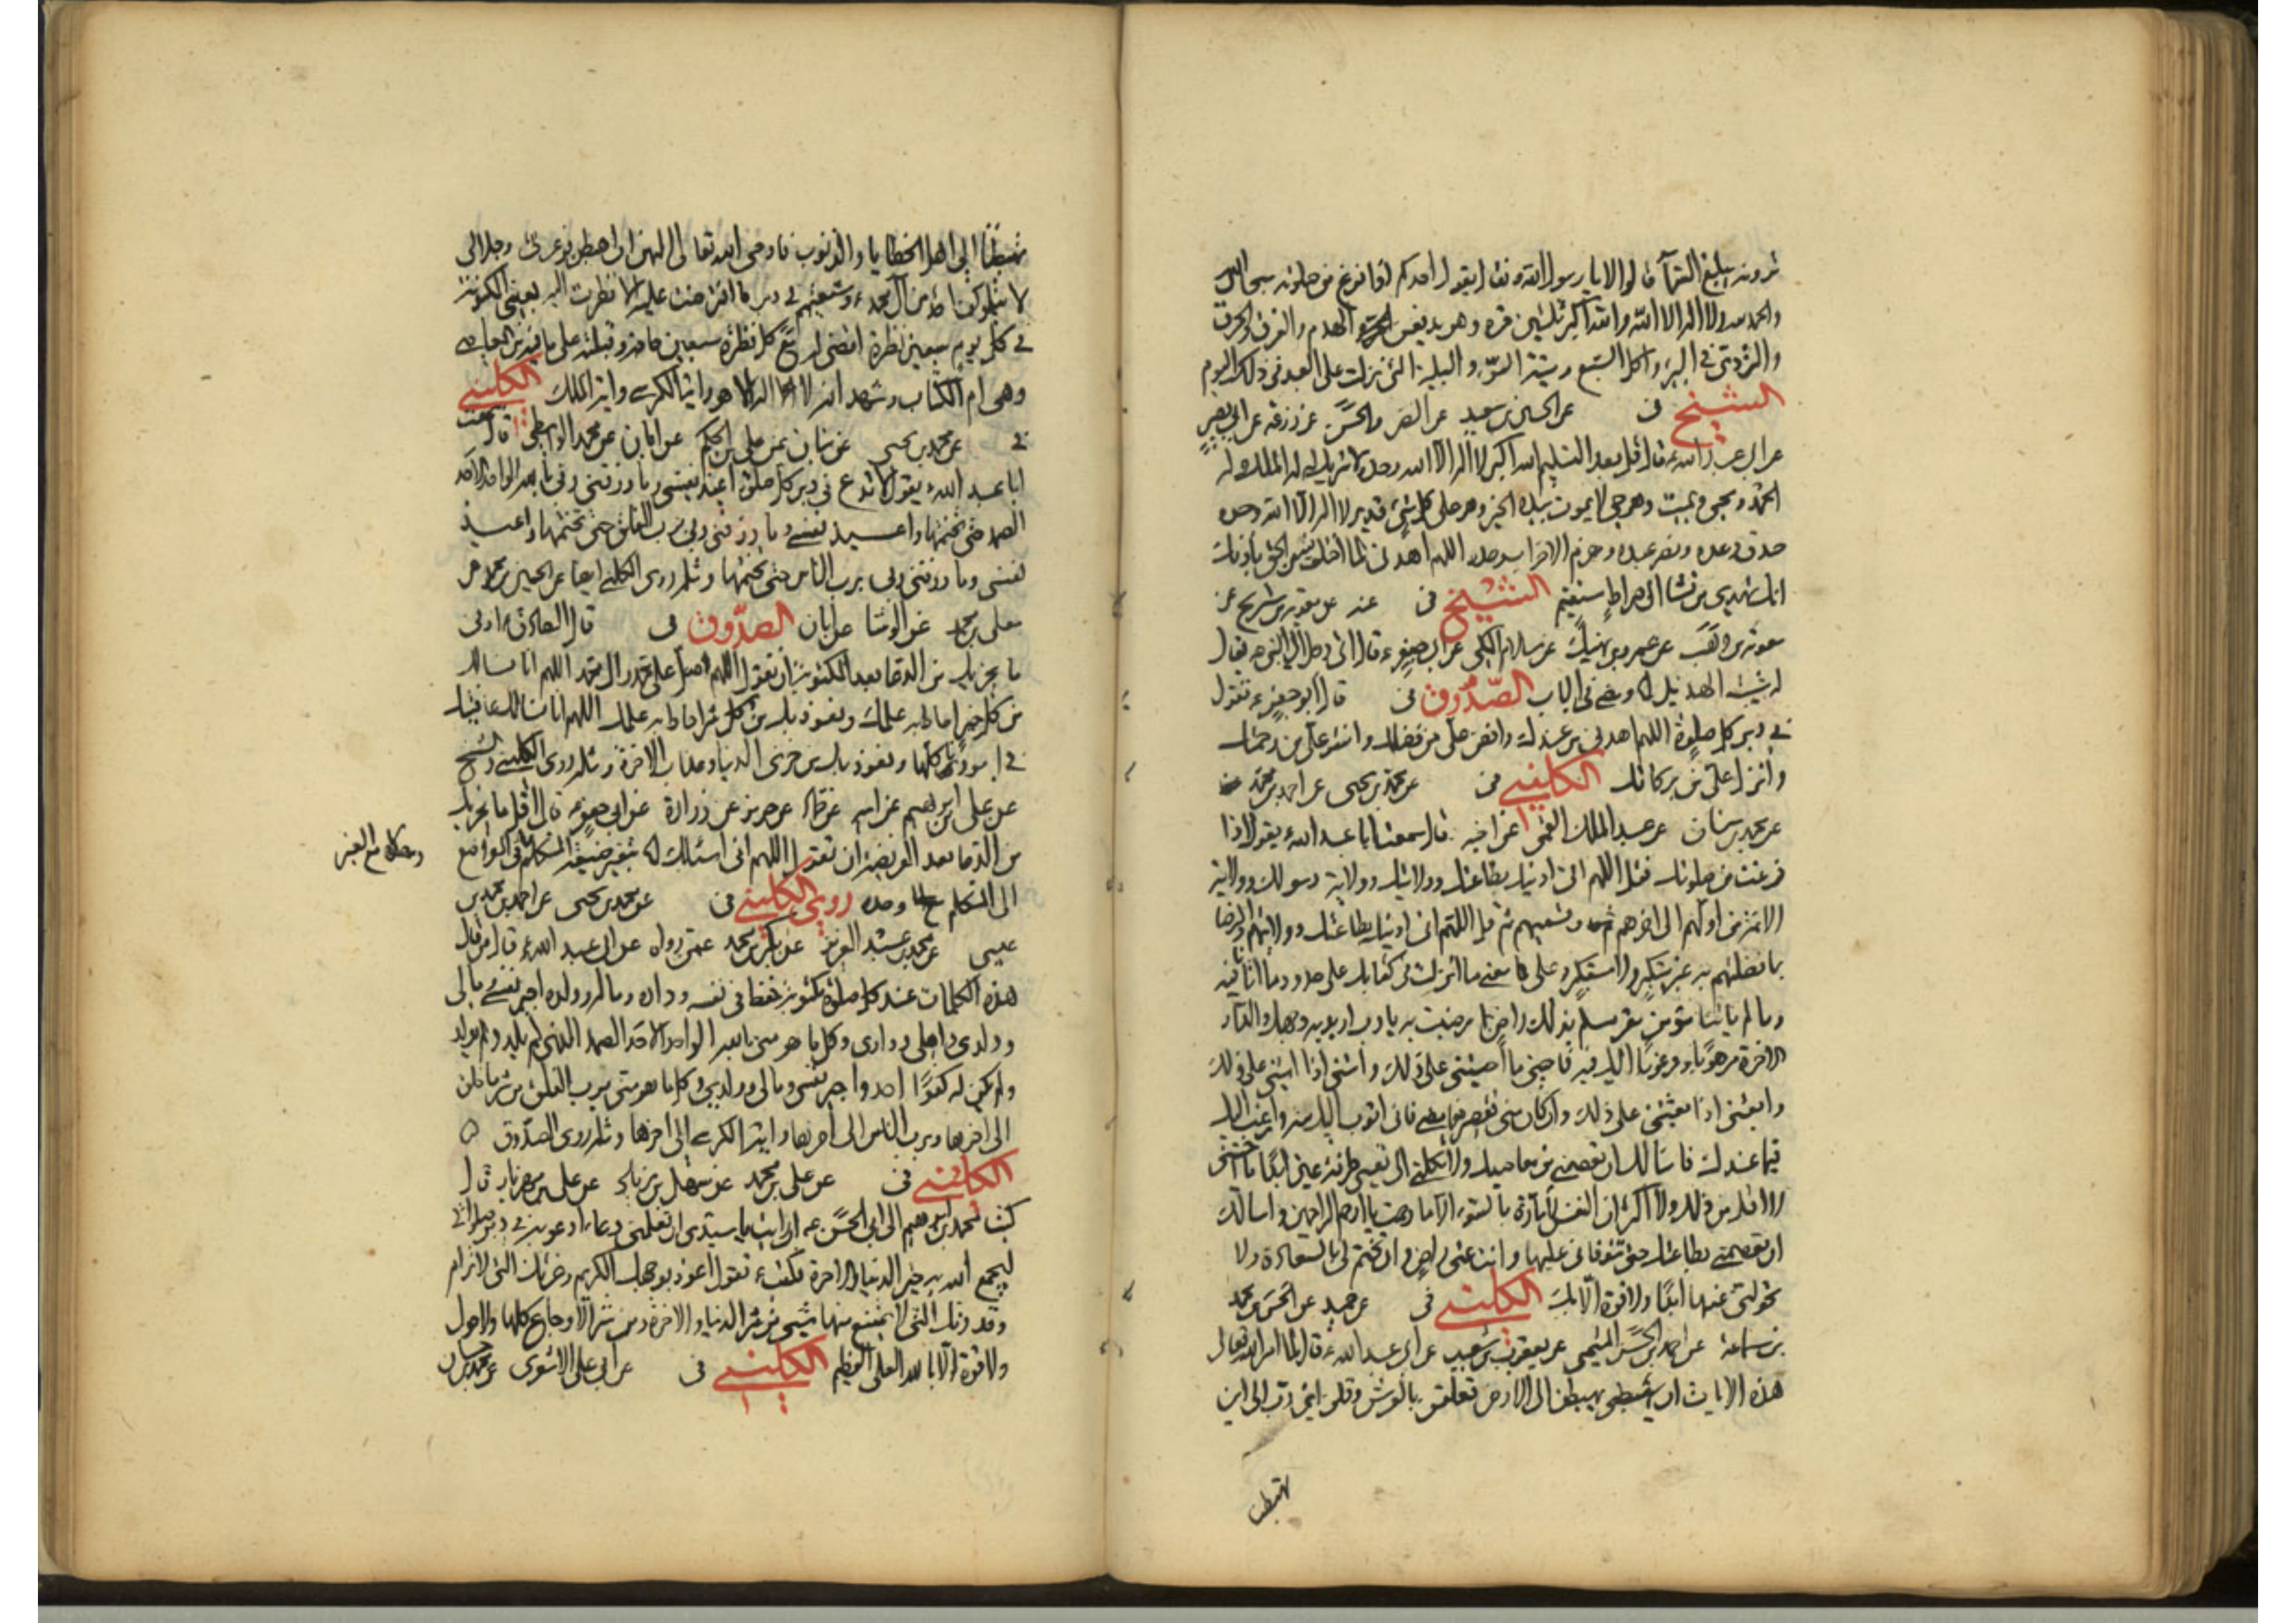 ترونه يبلغ السماء قالوا لا يا رسول الله فقال يقول احدكم اذا فرغ من صلوته سبحان الله
والحمد لله ولا اله الا الله والله اكبر ثلثين مرة وهو يدفعن الهدم والغرق والحرق
والتردى فى البئر واكل السبع وميتة السوء والبلية التى نزلت على العبد فى ذلك اليوم
الشيخ فى عن الحسين بن سعيد عن النضر والحسن عن زرعة عن ابى بصير
عن ابى عبد الله ع قال قل بعد التسليم الله اكبر لا اله الا الله وحده لا شريك له له الملك وله
الحمد ويحيى ويميت وهو حى لا يموت بيده الخير وهو على كل شئ قدير لا اله الا الله وحده
صدق وعده ونصر عبده وهزم الاحزاب وحده اللهم اهدنى لما اختلف فيه من الحق باذنك
انك تهدى من تشاء الى صراط مستقيم الشيخ فى عنه عن معوية بن شريح عن
معوية بن وهب عن عمرو بن نهيك عن سلام المكى عن ابى جعفر ع قال اتى رجل الى النبى ص يقال
له شيبة الهذيل الصدوق فى قال ابو جعفر ع تقول
فى دبر كل صلوة اللهم اهدنى من عندك وافض على من فضلك وانشر على من رحمتك
وانزل على من بركاتك الكلينى فى عن محمد بن يحيى عن احمد بن محمد
عن محمد بن سنان عن عبد الملك القمى عن اخيه قال سمعت ابا عبد الله ع يقول اذا
فرغت من صلوتك فقل اللهم انى ادينك بطاعتك وولايتك وولاية رسولك وولاية
الائمة من اولهم الى اخرهم وتسميهم ثم قل اللهم انى ادينك بطاعتك وولايتهم والرضا
بما فضلتهم به غير متكبر ولا مستكبر على معنى ما انزلت فى كتابك على حدود ما اتانا فيه
وما لم ياتنا مؤمن مقر مسلم بذلك راض بما رضيت به يا رب اريد به وجهك والدار
الاخرة مرهوبا ومرغوبا اليك فيه فاحينى ما احييتنى على ذلك وامتنى اذا امتنى على ذلك
وابعثنى اذا بعثتنى على ذلك وان كان منى تقصير فيما مضى فانى اتوب اليك منه وارغب اليك
فيما عندك فاسالك ان تعصمنى من معاصيك ولا تكلنى الى نفسى طرفة عين ابدا ما احييتنى
لا اقل من ذلك ولا اكثر ان النفس لامارة بالسوء الا ما رحمت يا ارحم الراحمين واسالك
ان تعصمنى بطاعتك حتى تتوفانى عليها وانت عنى راض وان تختم لى بالسعادة ولا
تحولنى عنها ابدا ولا قوة الا بك الكلينى فى عن حميد عن الحسن بن محمد
بن سماعة عن احمد بن الحسن الميثمى عن يعقوب بن شعيب عن ابى عبد الله ع قال لما امر الله تعالى
هذه الايات ان يهبطن الى الارض تعلقن بالعرش وقلن اى رب الى اين
تهبطنا
تهبطنا الى اهل الخطايا والذنوب فاوحى الله تعالى اليهن ان اهبطن فوعزتى وجلالى
لا يتلوكن احد من آل محمد ع وشيعتهم فى دبر ما افترضت عليه الا نظرت اليه بعينى المكنونة
فى كل يوم سبعين نظرة اقضى له مع كل نظرة سبعين حاجة وقبلته على ما فيه من المعاصى
وهى ام الكتاب وشهد الله انه لا اله الا هو واية الكرسى واية الملك الكلينى
فى عن محمد بن يحيى عن بنان عن على بن الحكم عن ابان عن محمد الواسطى قال سمعت
ابا عبد الله ع يقول لا تدع فى دبر كل صلوة اعيذ نفسى وما رزقنى ربى بالله الواحد الاحد
الصمد حتى تختمها واعيذ نفسى وما رزقنى ربى برب الفلق حتى تختمها واعيذ
نفسى وما رزقنى ربى برب الناس حتى تختمها ومثله روى الكلينى ايضا عن الحسين بن محمد عن
معلى بن محمد عن الوشا عن ابان الصدوق فى قال الصادق ع ادنى
ما يجزيك من الدعا بعد المكتوبة ان تقول اللهم صل على محمد وال محمد اللهم انا نسالك
من كل خير احاط به علمك ونعوذ بك من كل شر احاط به علمك اللهم انا نسالك عافيتك
فى امورنا كلها ونعوذ بك من خزى الدنيا وعذاب الاخرة ومثله روى الكلينى والشيخ
عن على بن ابرهيم عن ابيه عن حماد عن حريز عن زرارة عن ابى جعفر ع قال اقل ما يجزيك
من الدعا بعد الفريضة ان تقول اللهم انى اسئلك بتغيير صيغة المتكلم فى المواضع
مع الغير
الى المتكلم وحده روى الكلينى فى عن محمد بن يحيى عن احمد بن محمد بن
عيسى عن محمد بن عبد العزيز عن بكر بن محمد عمن رواه عن ابى عبد الله ع قال من قال
هذه الكلمات عند كل صلوة مكتوبة حفظ فى نفسه وداره وماله وولده اجير نفسى ومالى
وولدى واهلى ودارى وكل ما هو منى بالله الواحد الاحد الصمد الذى لم يلد ولم يولد
ولم يكن له كفوا احد واجير نفسى ومالى وولدى وكل ما هو منى برب الفلق من شر ما خلق
الى اخرها وبرب الناس الى اخرها واية الكرسى الى اخرها ومثله روى الصدوق
الكلينى فى عن على بن محمد عن سهل بن زياد عن على بن مهزيار قال
كتب محمد بن ابرهيم الى ابى الحسن ع ان رايت يا سيدى ان تعلمنى دعاء ادعو به فى دبر صلواتى
يجمع الله به خير الدنيا والاخرة فكتب ع تقول اعوذ بوجهك الكريم وعزتك التى لا ترام
وقدرتك التى لا يمتنع منها شئ من شر الدنيا والاخرة ومن شر الاوجاع كلها ولا حول
ولا قوة الا بالله العلى العظيم الكلينى فى عن ابى على الاشعرى عن محمد بن حسان